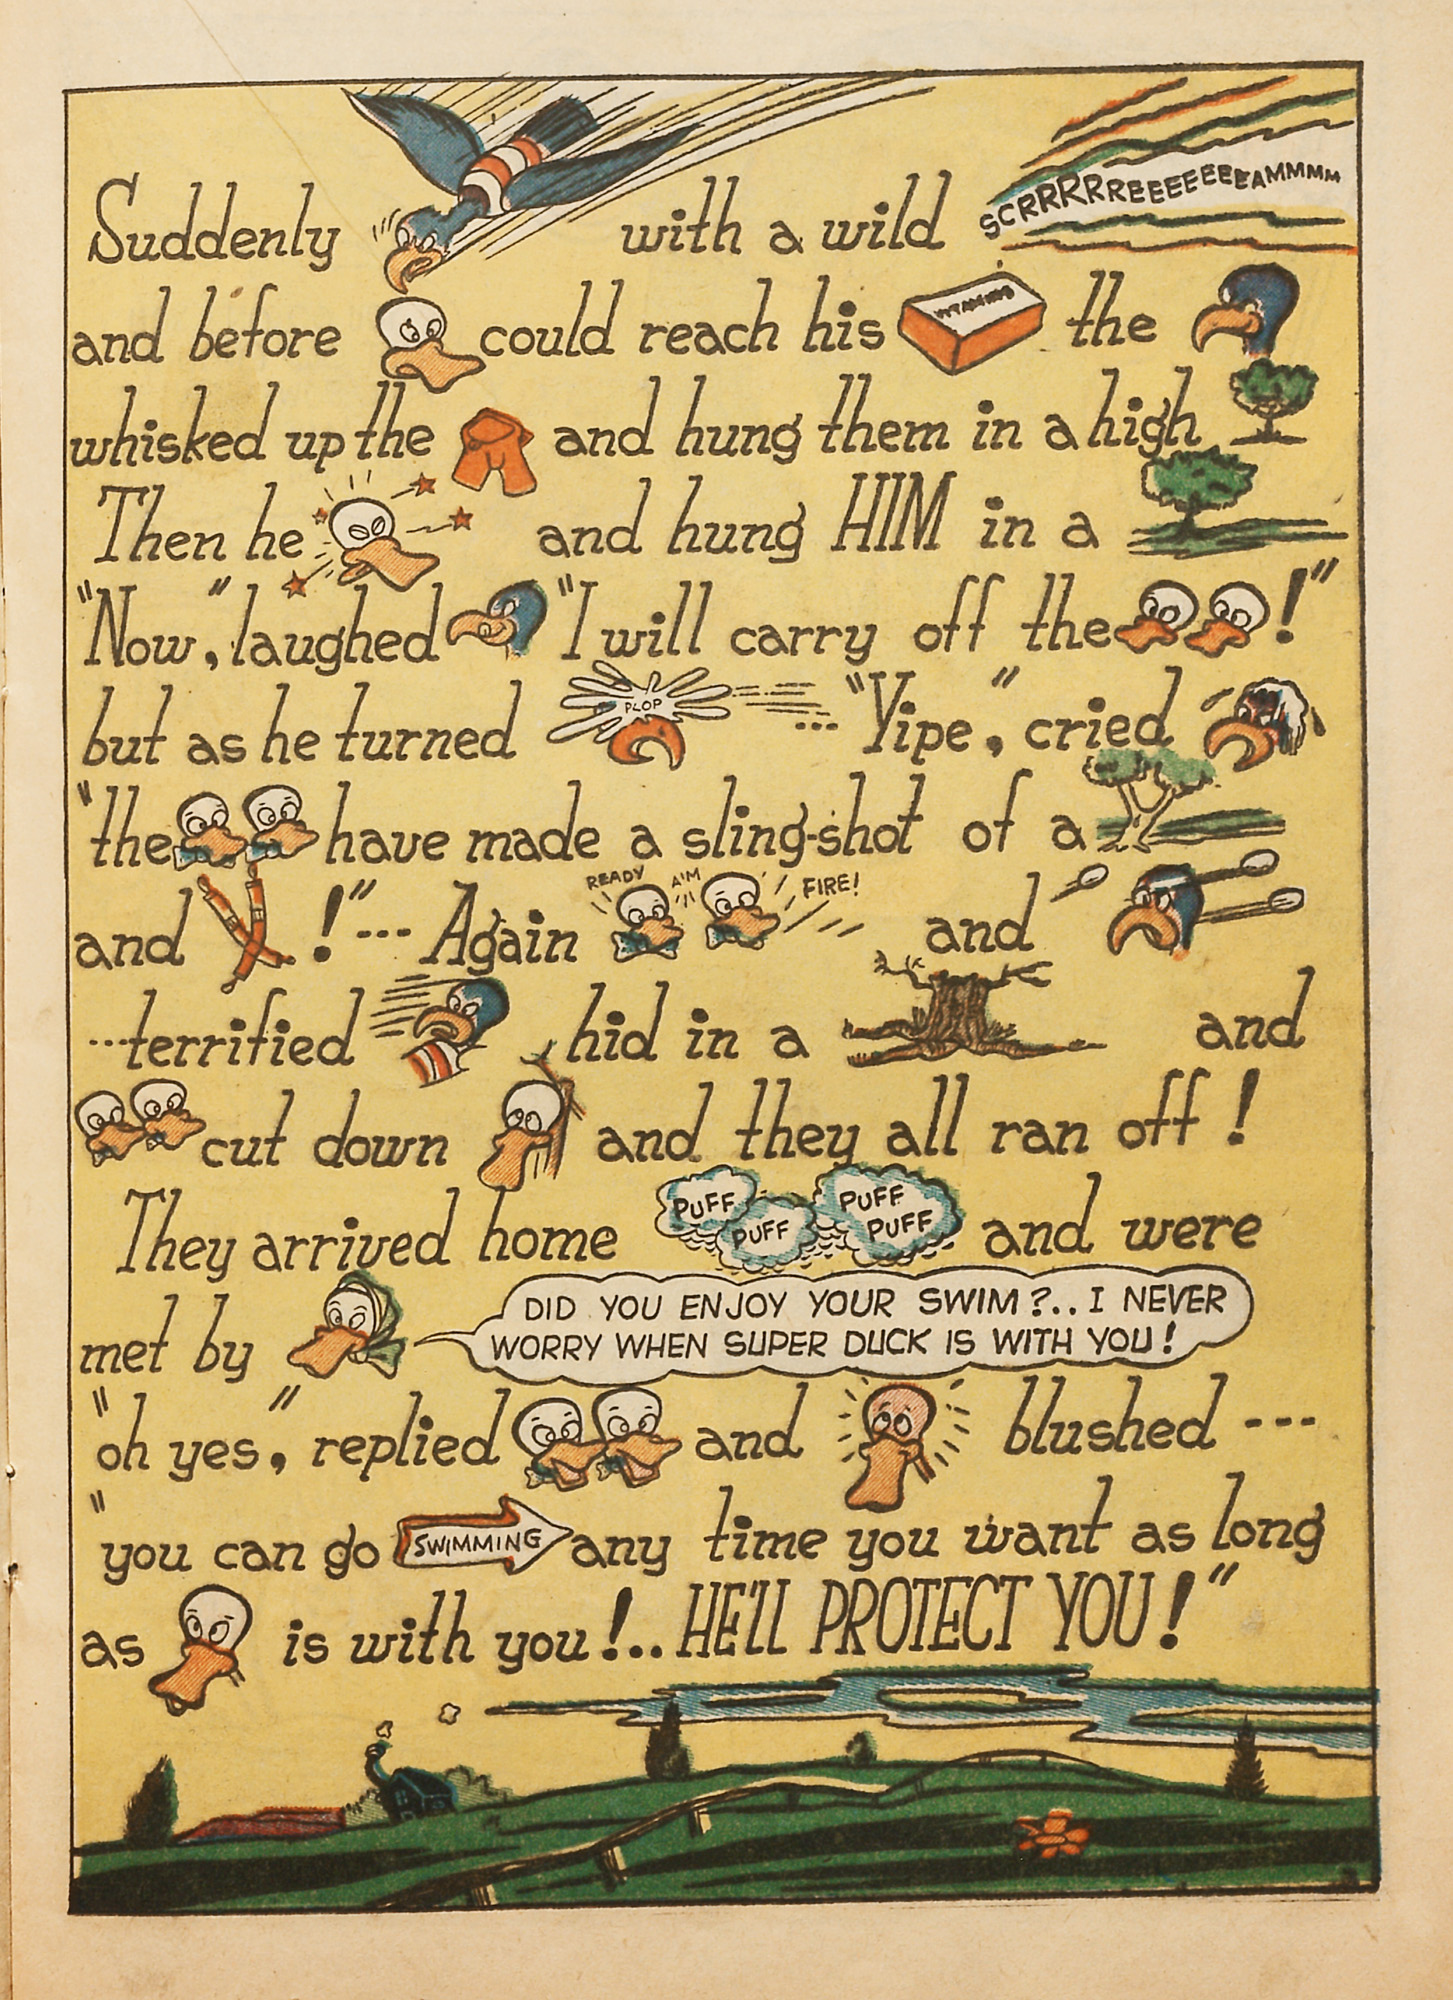 Suddenly with a wild SCRRRRRREEEEEEEEEAMMMM
and before could reach his VITAMINS the
whisked up the and hung them in a high
Then he and hung HIM in a
"Now," laughed "I will carry off the !"
but as he turned PLOP --- "Yipe," cried
"the have made a sling-shot of a
and !" --- Again READY AIM FIRE! and
---terrified hid in a and
cut down and they all ran off!
They arrived home PUFF PUFF PUFF PUFF and were
met by DID YOU ENJOY YOUR SWIM?.. I NEVER
WORRY WHEN SUPER DUCK IS WITH YOU!
"oh yes," replied and blushed ---
"you can go SWIMMING any time you want as long
as is with you!.. HE'LL PROTECT YOU!"